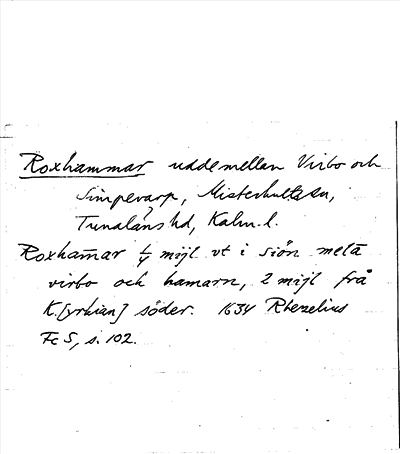 Roxhammar udde mellan Virbo och
Simpevarp, Misterhults sn,
Tunaläns hd, Kalm. l.
Roxham̄ar 1/4 mijl vt i siön metā
virbo och hamarn, 2 mijl frå
K.[yrkian] söder. 1634 Rhezelius
Fc 5, s. 102.